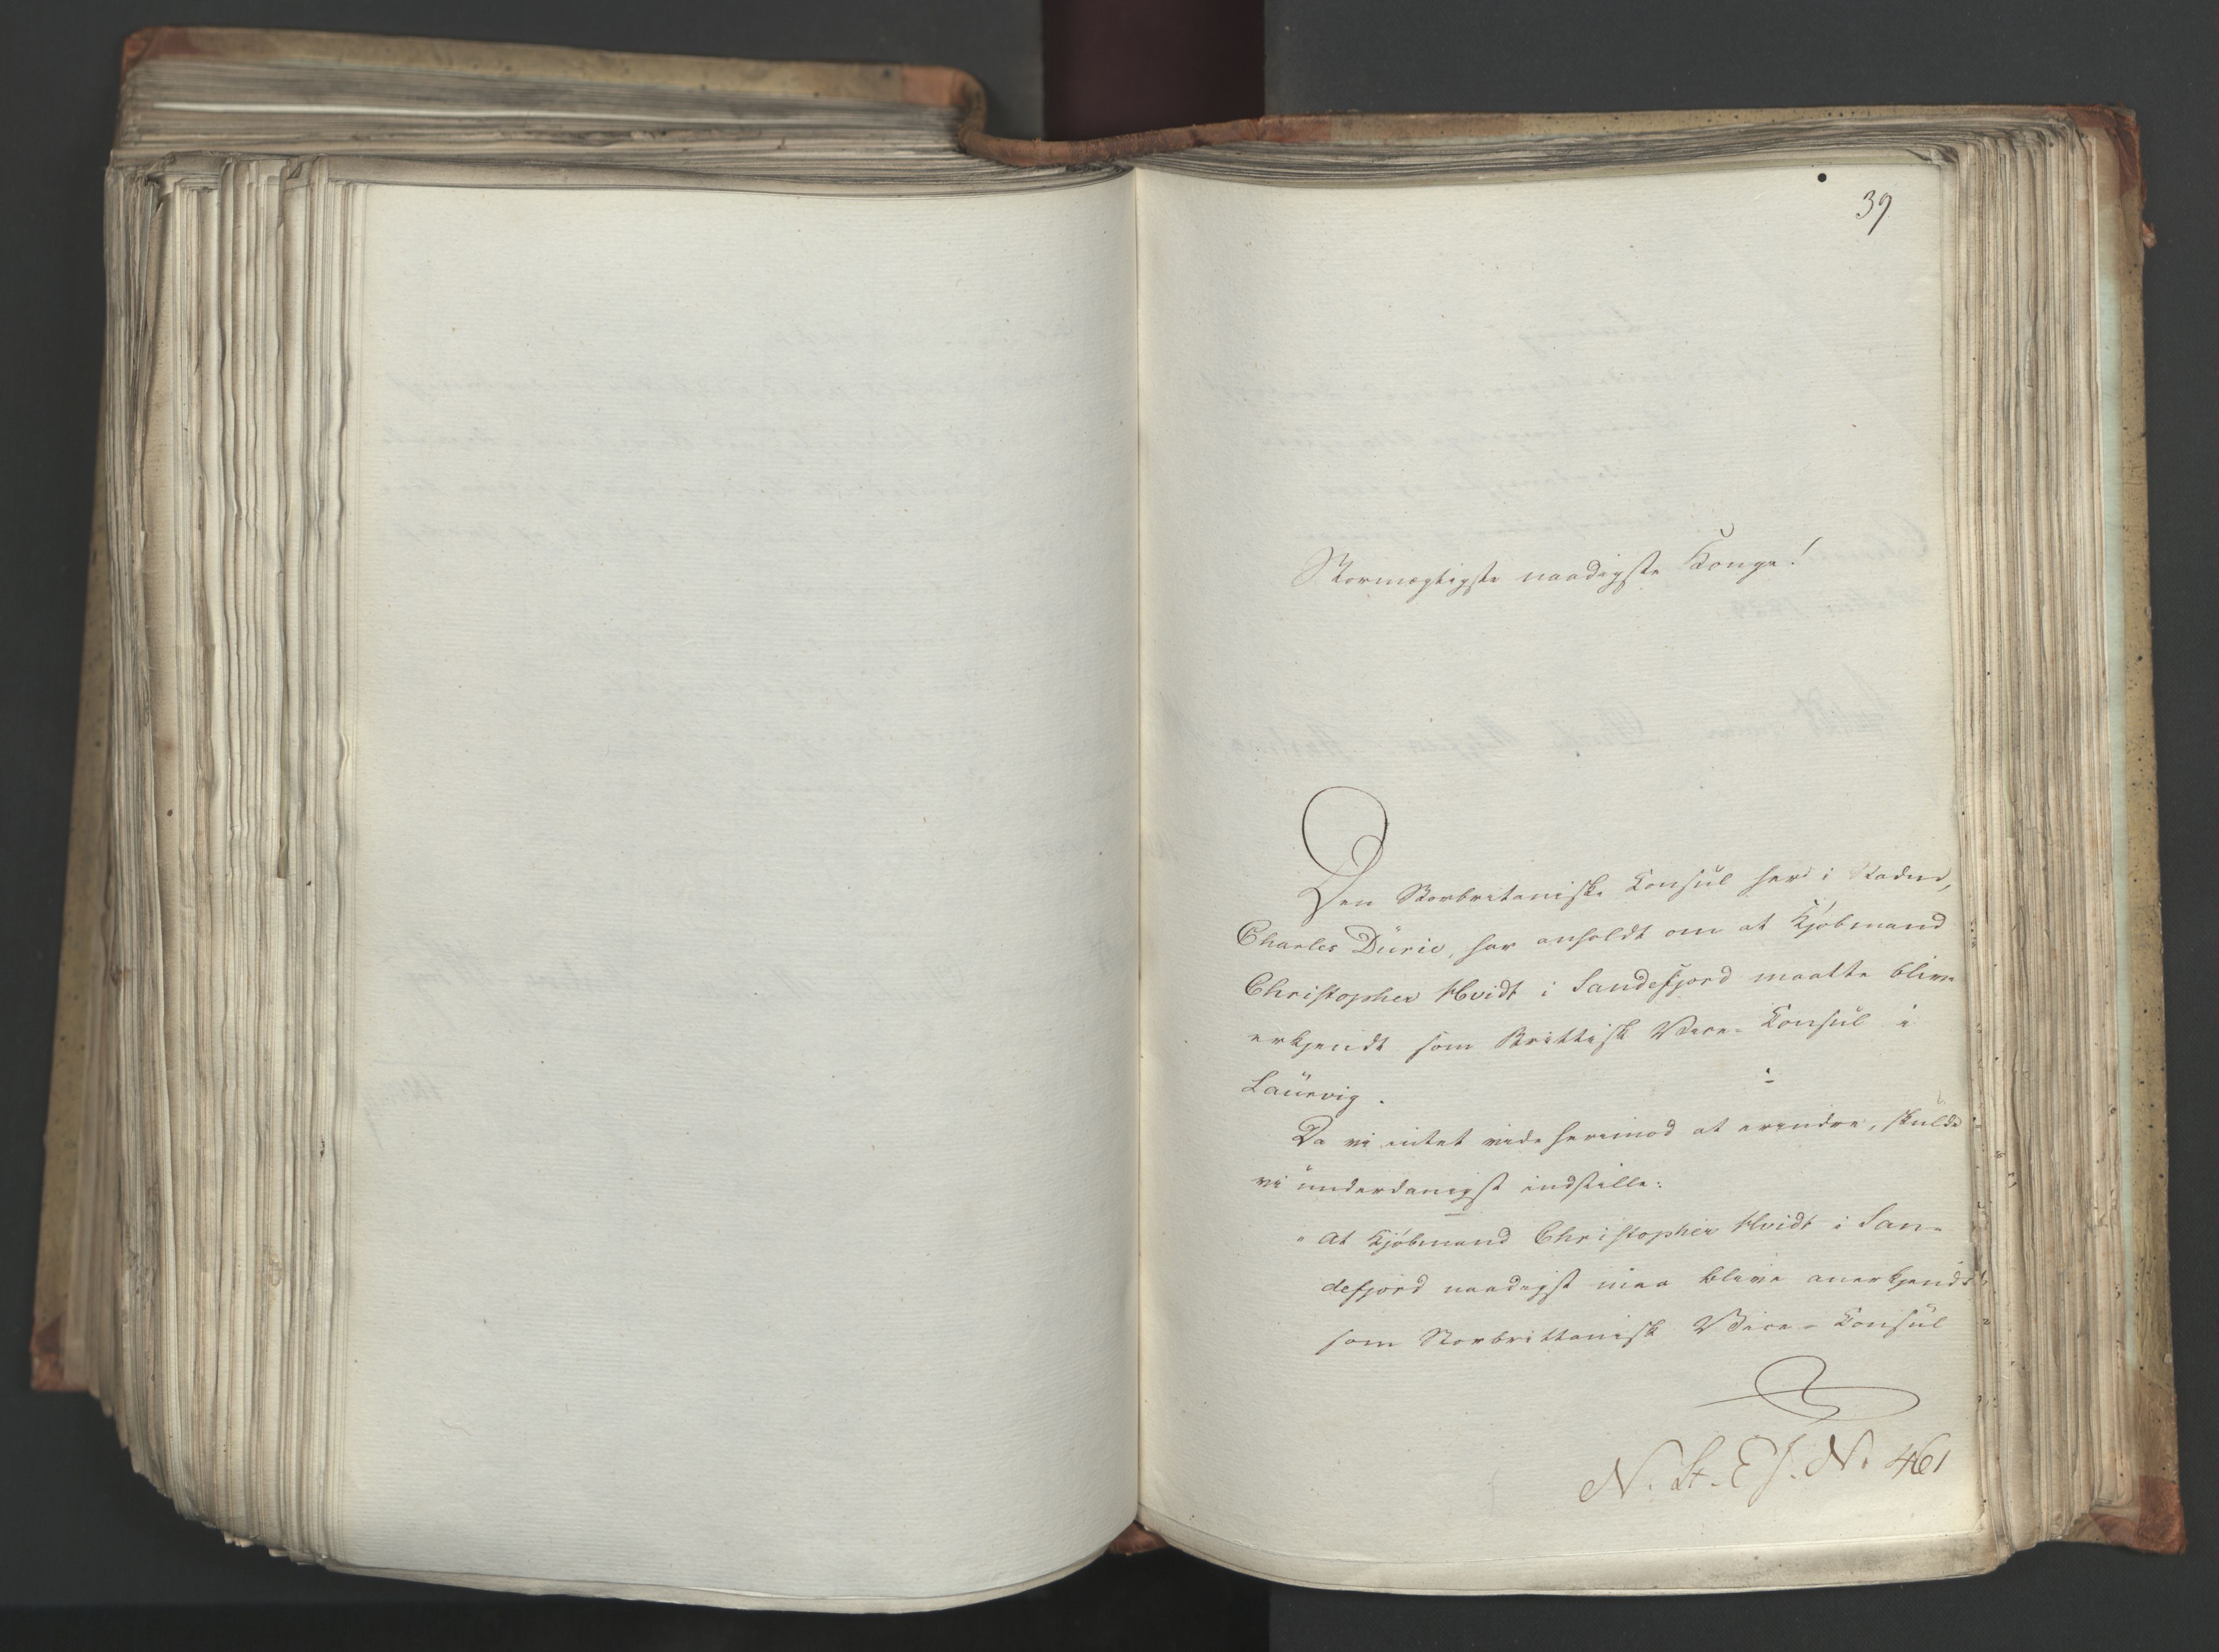 39
Stormægtigste naadigste Konge!
Den Storbritaniske Konsul her i Staden,
Charles Dürie, har anholdt om at Kjøbmand
Christopher Hvidt i Sandefjord maatte blive
erkjendt som Brittisk Vice-Konsul i
Laurvig.
Da vi intet vide herimod at erindre, skulde
vi underdanigst indstille:
" At Kjøbmand Christopher Hvidt i San-
defjord naadigst maa blive anerkjendt
som Storbrittanisk Vice-Konsul
N. St. E J. N. 461